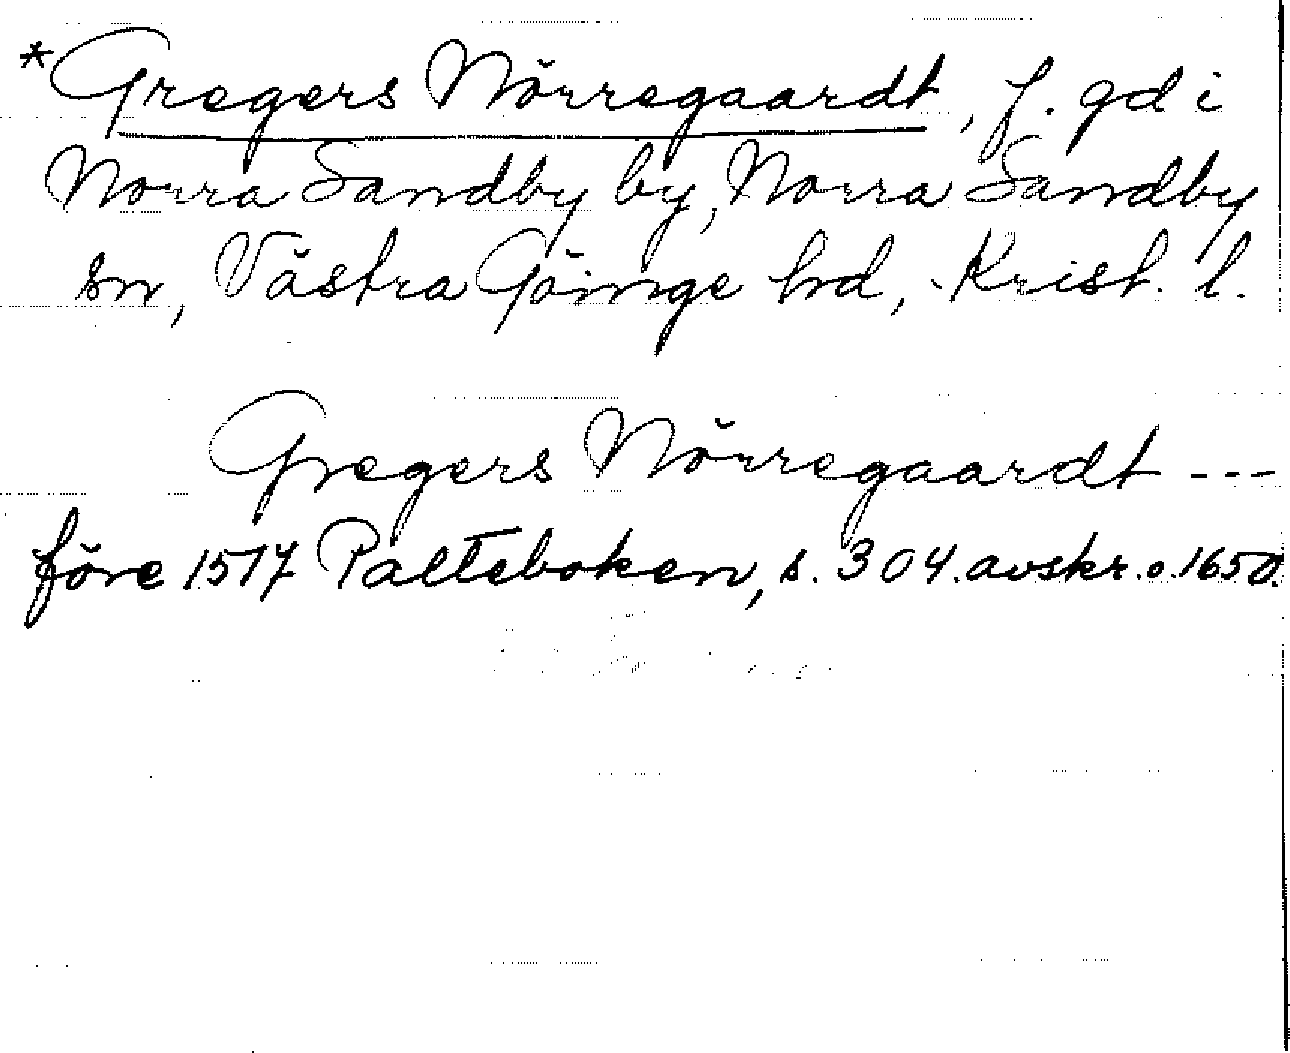 *Gregers Nörregaardt, f. gd i
Norra Sandby by, Norra Sandby
sn, Västra Göinge hd, Krist. l.
Gregers Nörregaardt ---
före 1517 Palteboken, s. 304. avskr. o. 1650.